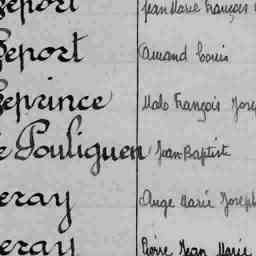 Leport Jean Marie François
Leport Amand Louis
Leprince Malo François Joseph
Le Pouliguen Jean Baptiste
Leray Ange Marie Joseph
Leray Pierre Jean Marie